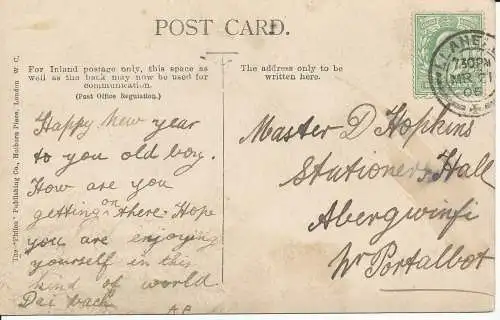 POST CARD.
For Inland postage only, this space as
well as the back may now be used for
communication.
(Post Office Regulation.)
The address only to be
written here.
The "Philco" Publishing Co., Holborn Place, London W C.
LLANELLY
730PM
MR 21
06
Happy New year
to you old boy.
How are you
getting on there. Hope
you are enjoying
yourself in this
kind of world
Dai bach
Master D Hopkins
Stationers Hall
Abergwinfi
Nr Portalbot